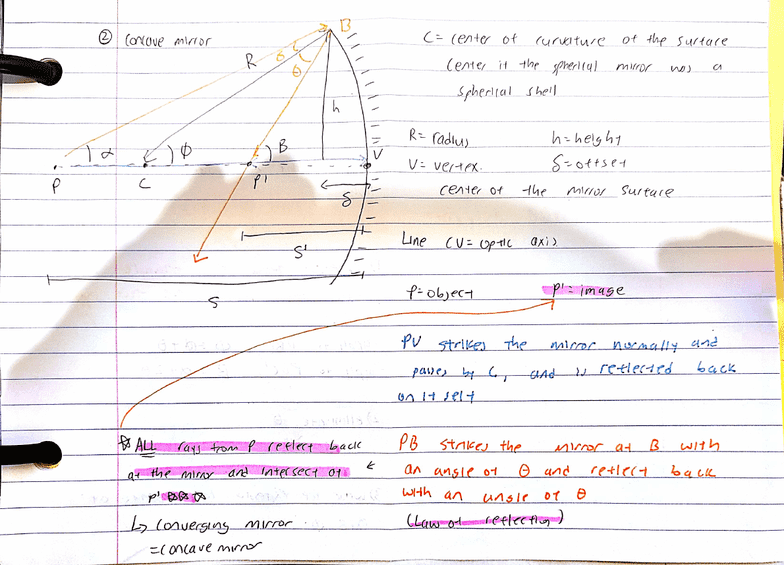 ② Concave mirror
B
R
θ
θ
h
α
φ
B
V
P
C
P'
δ
S'
S
C = center of curvature of the surface
(center if the spherical mirror was a
spherical shell
R = radius
h = height
V = vertex.
δ = offset
center of the mirror surface
Line CV = optic axis
P = object
P' = image
PV strikes the mirror normally and
passes by C, and is reflected back
on it self
☆ ALL rays from P reflect back
at the mirror and intersect at
P' ☆☆☆
↳ converging mirror
= concave mirror
PB strikes the mirror at B with
an angle of θ and reflect back
with an angle of θ
(Law of reflection)